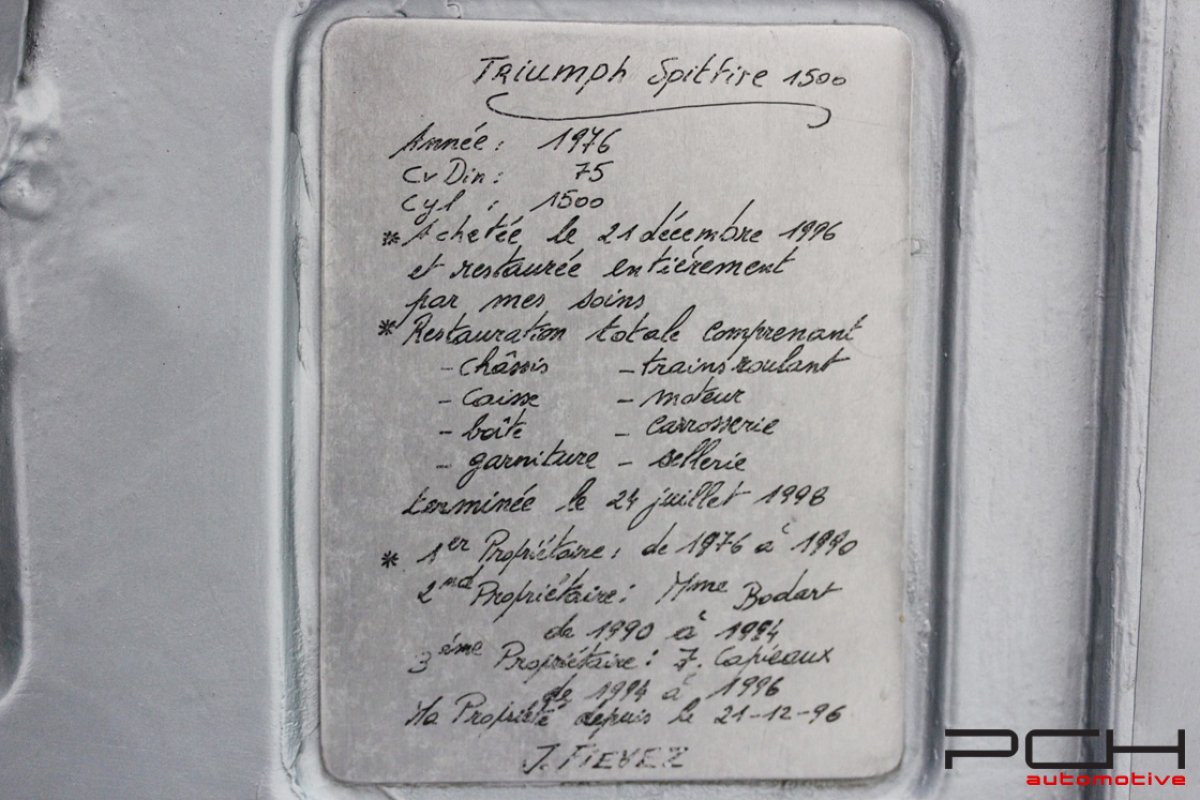 Triumph Spitfire 1500
Année : 1976
Cv Din : 75
Cyl : 1500
* Achetée le 21 décembre 1996
et restaurée entiérement
par mes soins
* Restauration totale comprenant
- châssis - trains roulant
- caisse - moteur
- boîte - carrosserie
- garniture - sellerie
terminée le 24 juillet 1998
* 1er Propriétaire : de 1976 à 1990
2nd Propriétaire : Mme Bodart
de 1990 à 1994
3éme Propriétaire : J. Capieaux
de 1994 à 1996
Ma Propriété depuis le 21-12-96
J. FIEVEZ
PCH
automotive